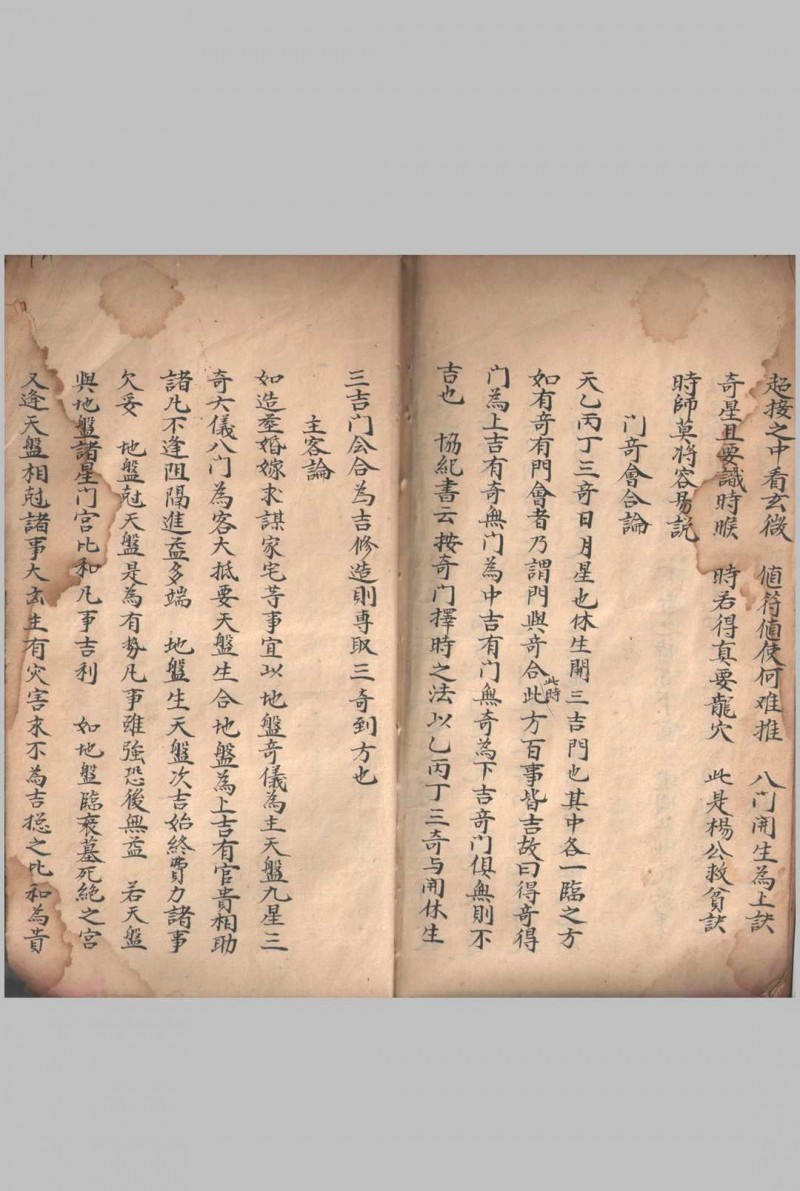 超接之中看玄微　值符值使何难推　八门開生為上訣
奇星丑要識時睺　時若得真要龍穴　此是楊公救貧訣
時師莫將容易説
门奇會合論
天乙丙丁三奇日月星也休生開三吉門也其中各一臨之方
如有奇有門會者乃謂門與奇合此時此方百事皆吉故曰得奇得
门為上吉有奇無门為中吉有门無奇為下吉奇门俱無則不
吉也　協紀書云按奇门擇時之法以乙丙丁三奇与開休生
三吉门会合為吉修造則専取三奇到方也
主客論
如造塟婚嫁求謀家宅等事宜以地盤奇儀為主天盤九星三
奇六儀八门為客大抵要天盤生合地盤為上吉有官貴相助
諸凡不逢阻隔進益多端　地盤生天盤次吉始終費力諸事
欠妥　地盤尅天盤是為有势凡事雖強恐後無益　若天盤
與地盤諸星门宮比和凡事吉利　如地盤臨衰墓死絶之宮
又逢天盤相尅諸事大玄主有灾害求不為吉捴之比和為貴